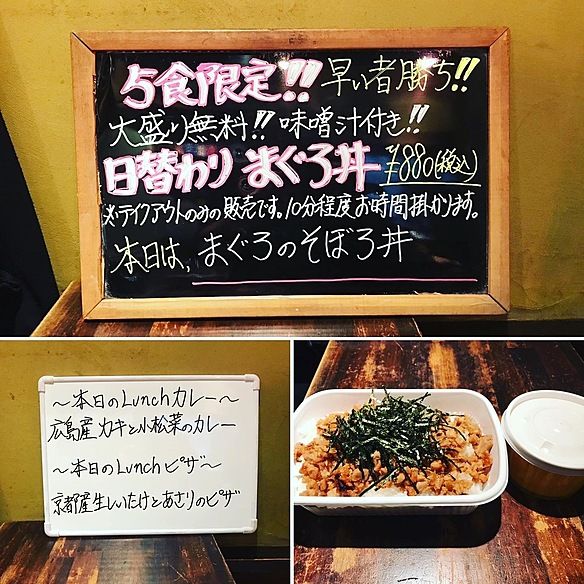 5食限定!! 早い者勝ち!!
大盛り無料!! 味噌汁付き!!
日替わり まぐろ丼 ¥880(税込)
※テイクアウトのみの販売です。10分程度お時間掛かります。
本日は、まぐろのそぼろ丼
〜本日のLunchカレー〜
広島産カキと小松菜のカレー
〜本日のLunchピザ〜
京都産生しいたけとあさりのピザ